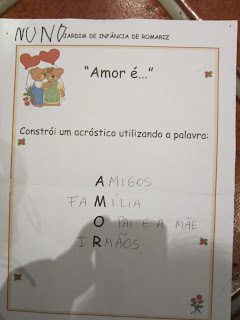 NUNO JARDIM DE INFÂNCIA DE ROMARIZ
"Amor é..."
Constrói um acróstico utilizando a palavra:
AMIGOS
FAMÍLIA
O PAI E A MÃE
IRMÃOS